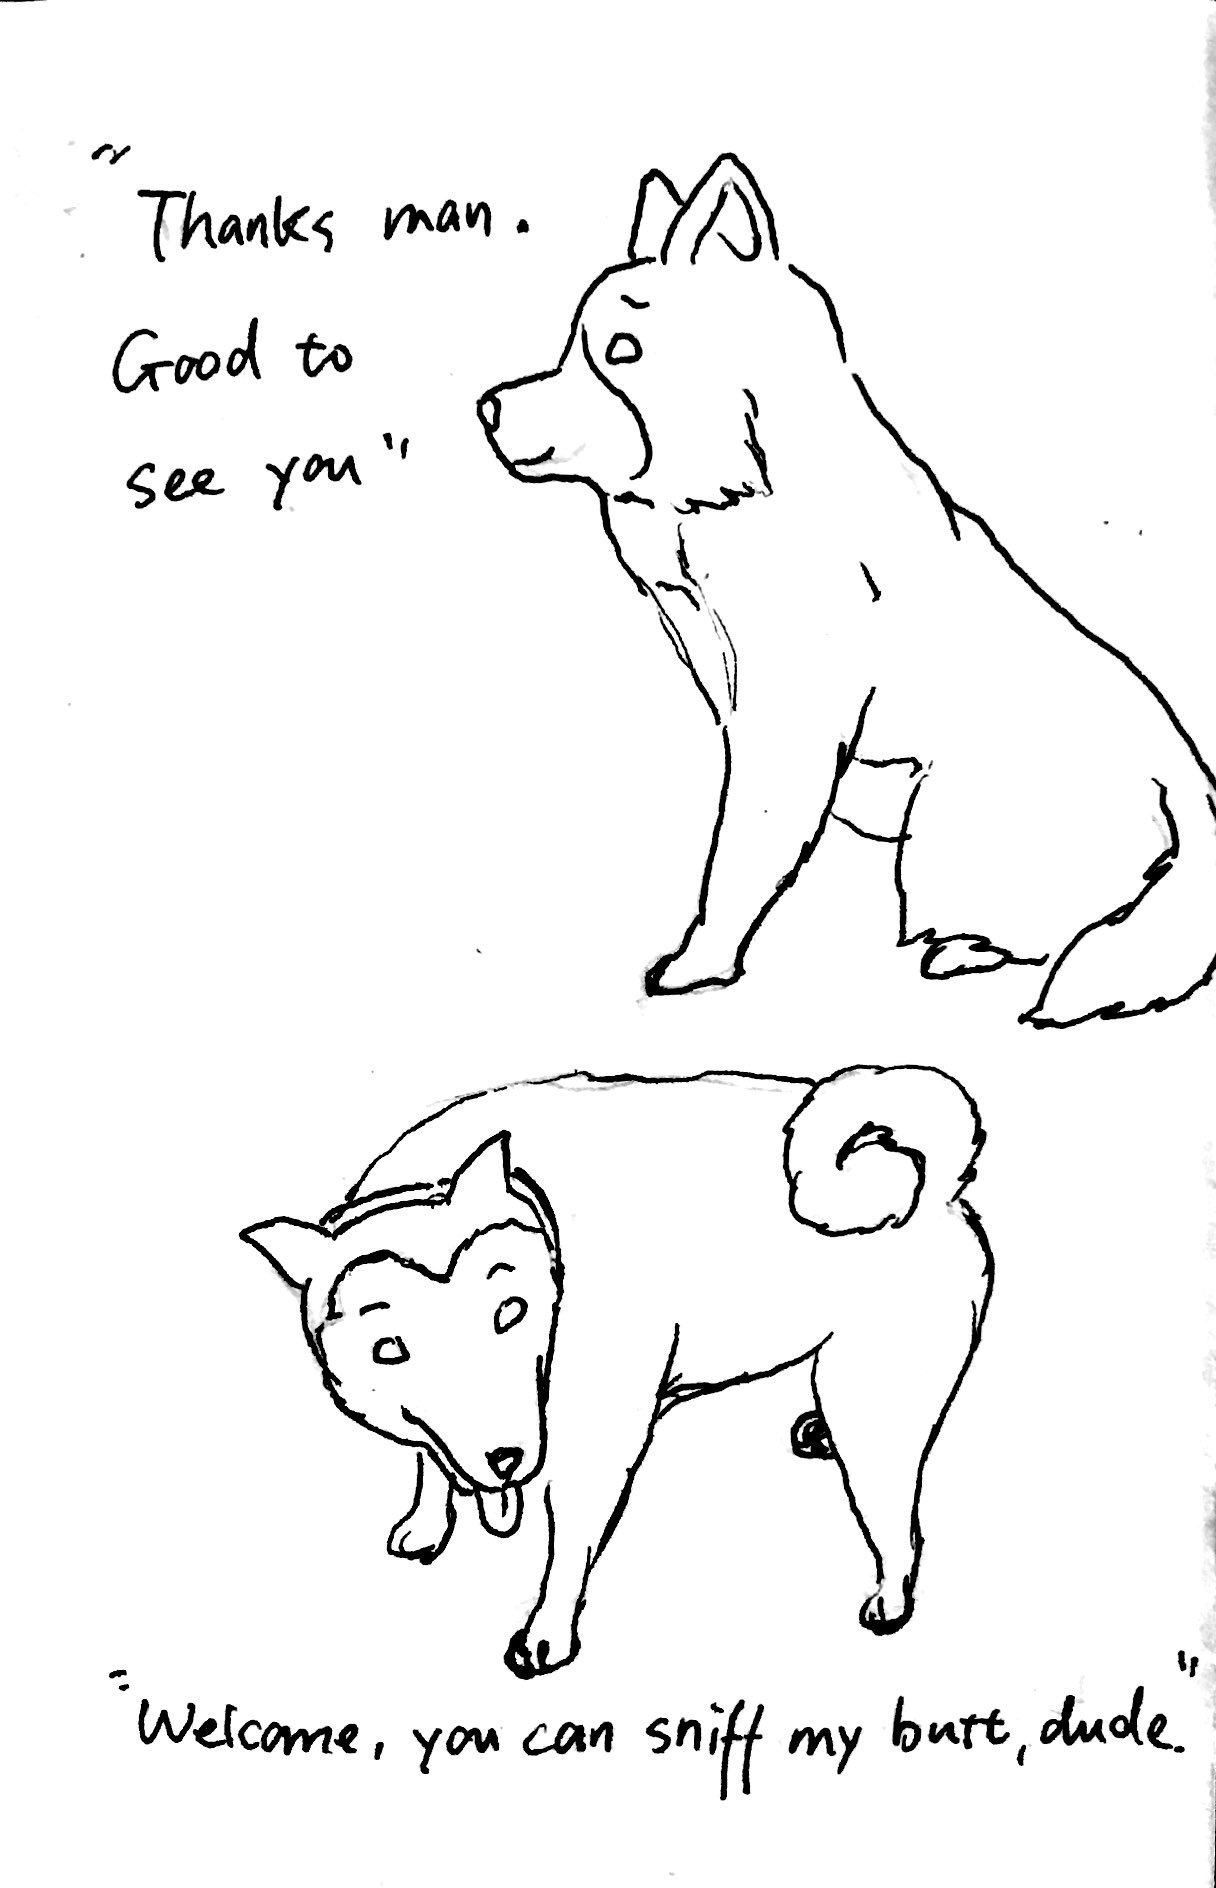 "Thanks man.
Good to
see you"
"Welcome, you can sniff my butt, dude."